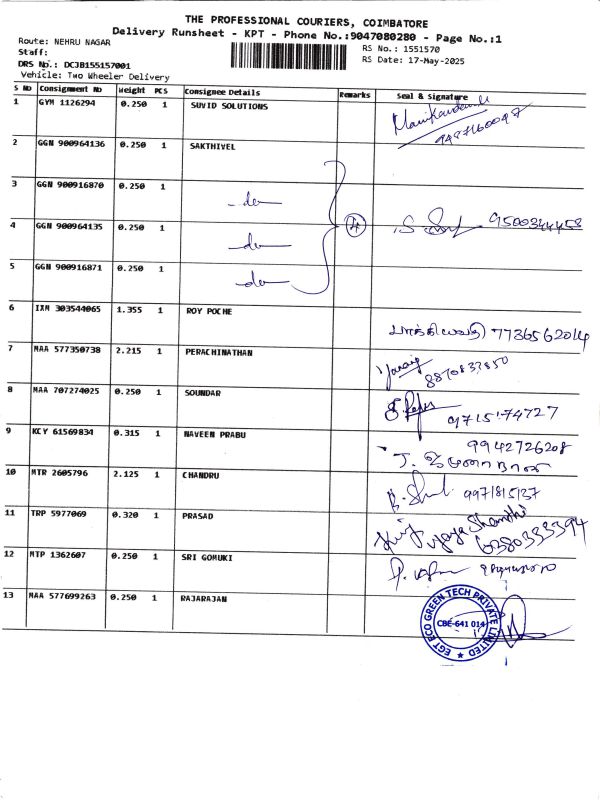 THE PROFESSIONAL COURIERS, COIMBATORE
Delivery Runsheet - KPT - Phone No.:9047080280 - Page No.:1
Route: NEHRU NAGAR
RS No.: 1551570
Staff:
RS Date: 17-May-2025
DRS No.: DCJB155157001
Vehicle: Two Wheeler Delivery
S No Consignment No Weight PCS Consignee Details Remarks Seal & Signature
1 GYM 1126294 0.250 1 SUVID SOLUTIONS
2 GGN 900964136 0.250 1 SAKTHIVEL
3 GGN 900916870 0.250 1
4 GGN 900964135 0.250 1 4 9500344458
5 GGN 900916871 0.250 1
6 IXM 303544065 1.355 1 ROY POCHE 7736562014
7 MAA 577350738 2.215 1 PERACHINATHAN 8870833850
8 MAA 707274025 0.250 1 SOUNDAR 9715174727
9 KCY 61569834 0.315 1 NAVEEN PRABU 9942726208
10 MTR 2605796 2.125 1 CHANDRU
11 TRP 5977069 0.320 1 PRASAD Vijaya Shanthi 6380333394
12 MTP 1362607 0.250 1 SRI GOMUKI
13 MAA 577699263 0.250 1 RAJARAJAN
EGT ECO GREEN TECH PRIVATE LIMITED
CBE-641 014